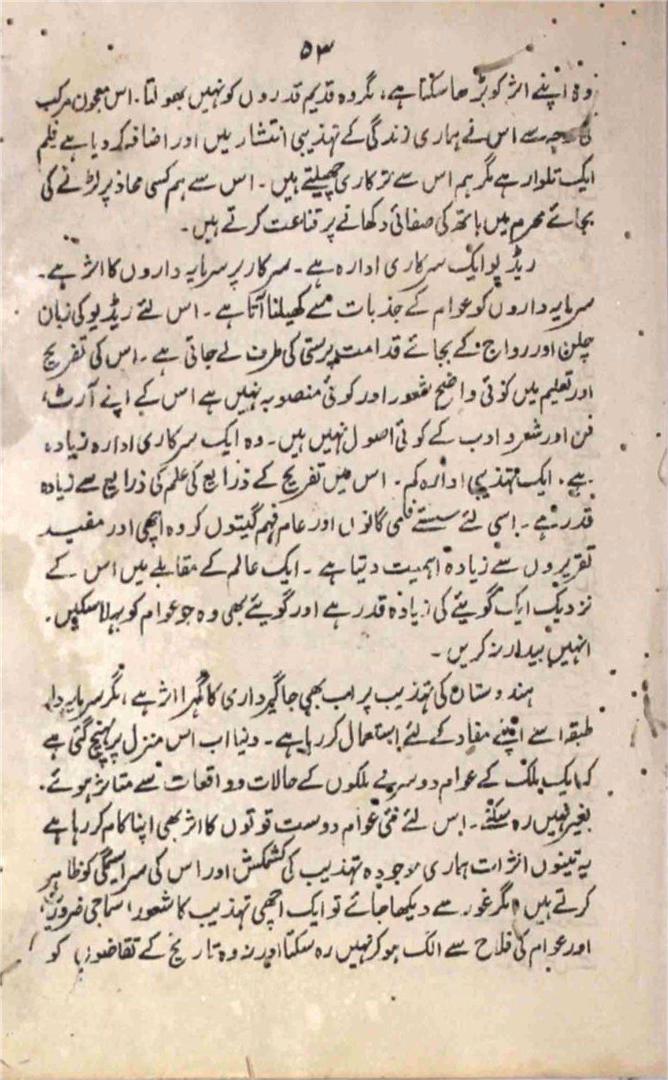 ۵۳
وہ اپنے اثر کو بڑھا سکتا ہے، مگر وہ قدیم قدروں کو نہیں بھولتا۔ اس معجون مرکب
کی وجہ سے اس نے ہماری زندگی کے تہذیبی انتشار میں اور اضافہ کر دیا ہے فلم
ایک تلوار ہے مگر ہم اس سے ترکاری چھیلتے ہیں۔ اس سے ہم کسی محاذ پر لڑنے کی
بجائے محرم میں ہاتھ کی صفائی دکھانے پر قناعت کرتے ہیں۔
ریڈیو ایک سرکاری ادارہ ہے۔ سرکار پر سرمایہ داروں کا اثر ہے۔
سرمایہ داروں کو عوام کے جذبات سے کھیلنا آتا ہے۔ اس لئے ریڈیو کی زبان
چلن اور رواج کے بجائے قدامت پرستی کی طرف لے جاتی ہے۔ اس کی تفریح
اور تعلیم میں کوئی واضح شعور اور کوئی منصوبہ نہیں ہے اس کے اپنے آرٹ،
فن اور شعر و ادب کے کوئی اصول نہیں ہیں۔ وہ ایک سرکاری ادارہ زیادہ
ہے۔ ایک تہذیبی ادارہ کم۔ اس میں تفریح کے ذرایع کی علم کی ذرایع سے زیادہ
قدر ہے۔ اسی لئے سستے فلمی گانوں اور عام فہم گیتوں کو وہ اچھی اور مفید
تقریروں سے زیادہ اہمیت دیتا ہے۔ ایک عالم کے مقابلے میں اس کے
نزدیک ایک گویئے کی زیادہ قدر ہے اور گویئے بھی وہ جو عوام کو بہلا سکیں۔
انہیں بیدار نہ کریں۔
ہندوستان کی تہذیب پر اب بھی جاگیرداری کا گہرا اثر ہے، مگر سرمایہ دار
طبقہ اسے اپنے مفاد کے لئے استعمال کر رہا ہے۔ دنیا اب اس منزل پر پہنچ گئی ہے
کہ ایک ملک کے عوام دوسرے ملکوں کے حالات و واقعات سے متاثر ہوئے
بغیر نہیں رہ سکتے۔ اس لئے نئی عوام دوست قوتوں کا اثر بھی اپنا کام کر رہا ہے
یہ تینوں اثرات ہماری موجودہ تہذیب کی کشمکش اور اس کی سراسیمگی کو ظاہر
کرتے ہیں مگر غور سے دیکھا جائے تو ایک اچھی تہذیب کا شعور، سماجی ضروریات
اور عوام کی فلاح سے الگ ہو کر نہیں رہ سکتا اور نہ وہ تاریخ کے تقاضوں کو